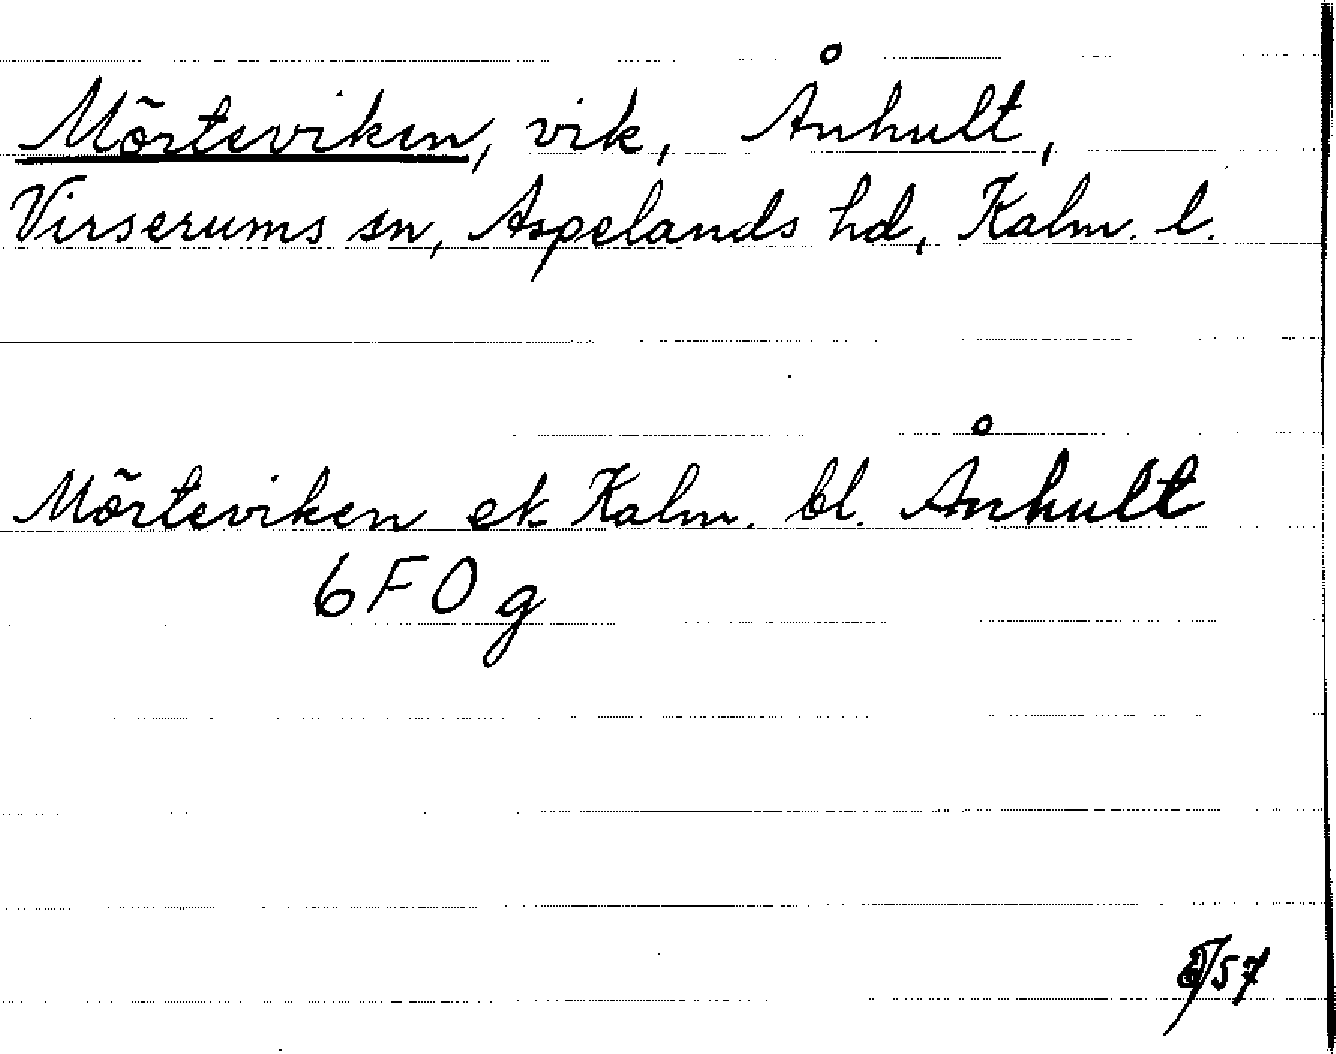 Mörteviken, vik, Ånhult,
Virserums sn, Aspelands hd, Kalm. l.
Mörteviken ek Kalm. bl. Ånhult
6 F 0 g
/57